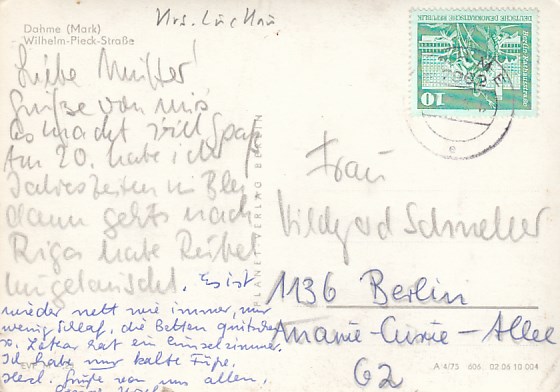 Dahme (Mark)
Wilhelm-Pieck-Straße
Liebe Mutter!
Grüße von uns
Es macht viel Spaß
Am 20. habe ich
Jahreszeiten in
dann gehts nach
Riga habe Rubel
umgetauscht. Es ist
wieder nett wie immer, nur
wenig Schlaf, die Betten quietschen
hat ein Einzelzimmer.
Ich habe nur kalte Füße.
Herzl. Grüße von uns allen,
EVP
PLANET-VERLAG BERLIN
DEUTSCHE DEMOKRATISCHE REPUBLIK
Berlin-Rathausstraße
10
Frau
1136 Berlin
Allee
62
A 4/75 606. 02 06 10 004